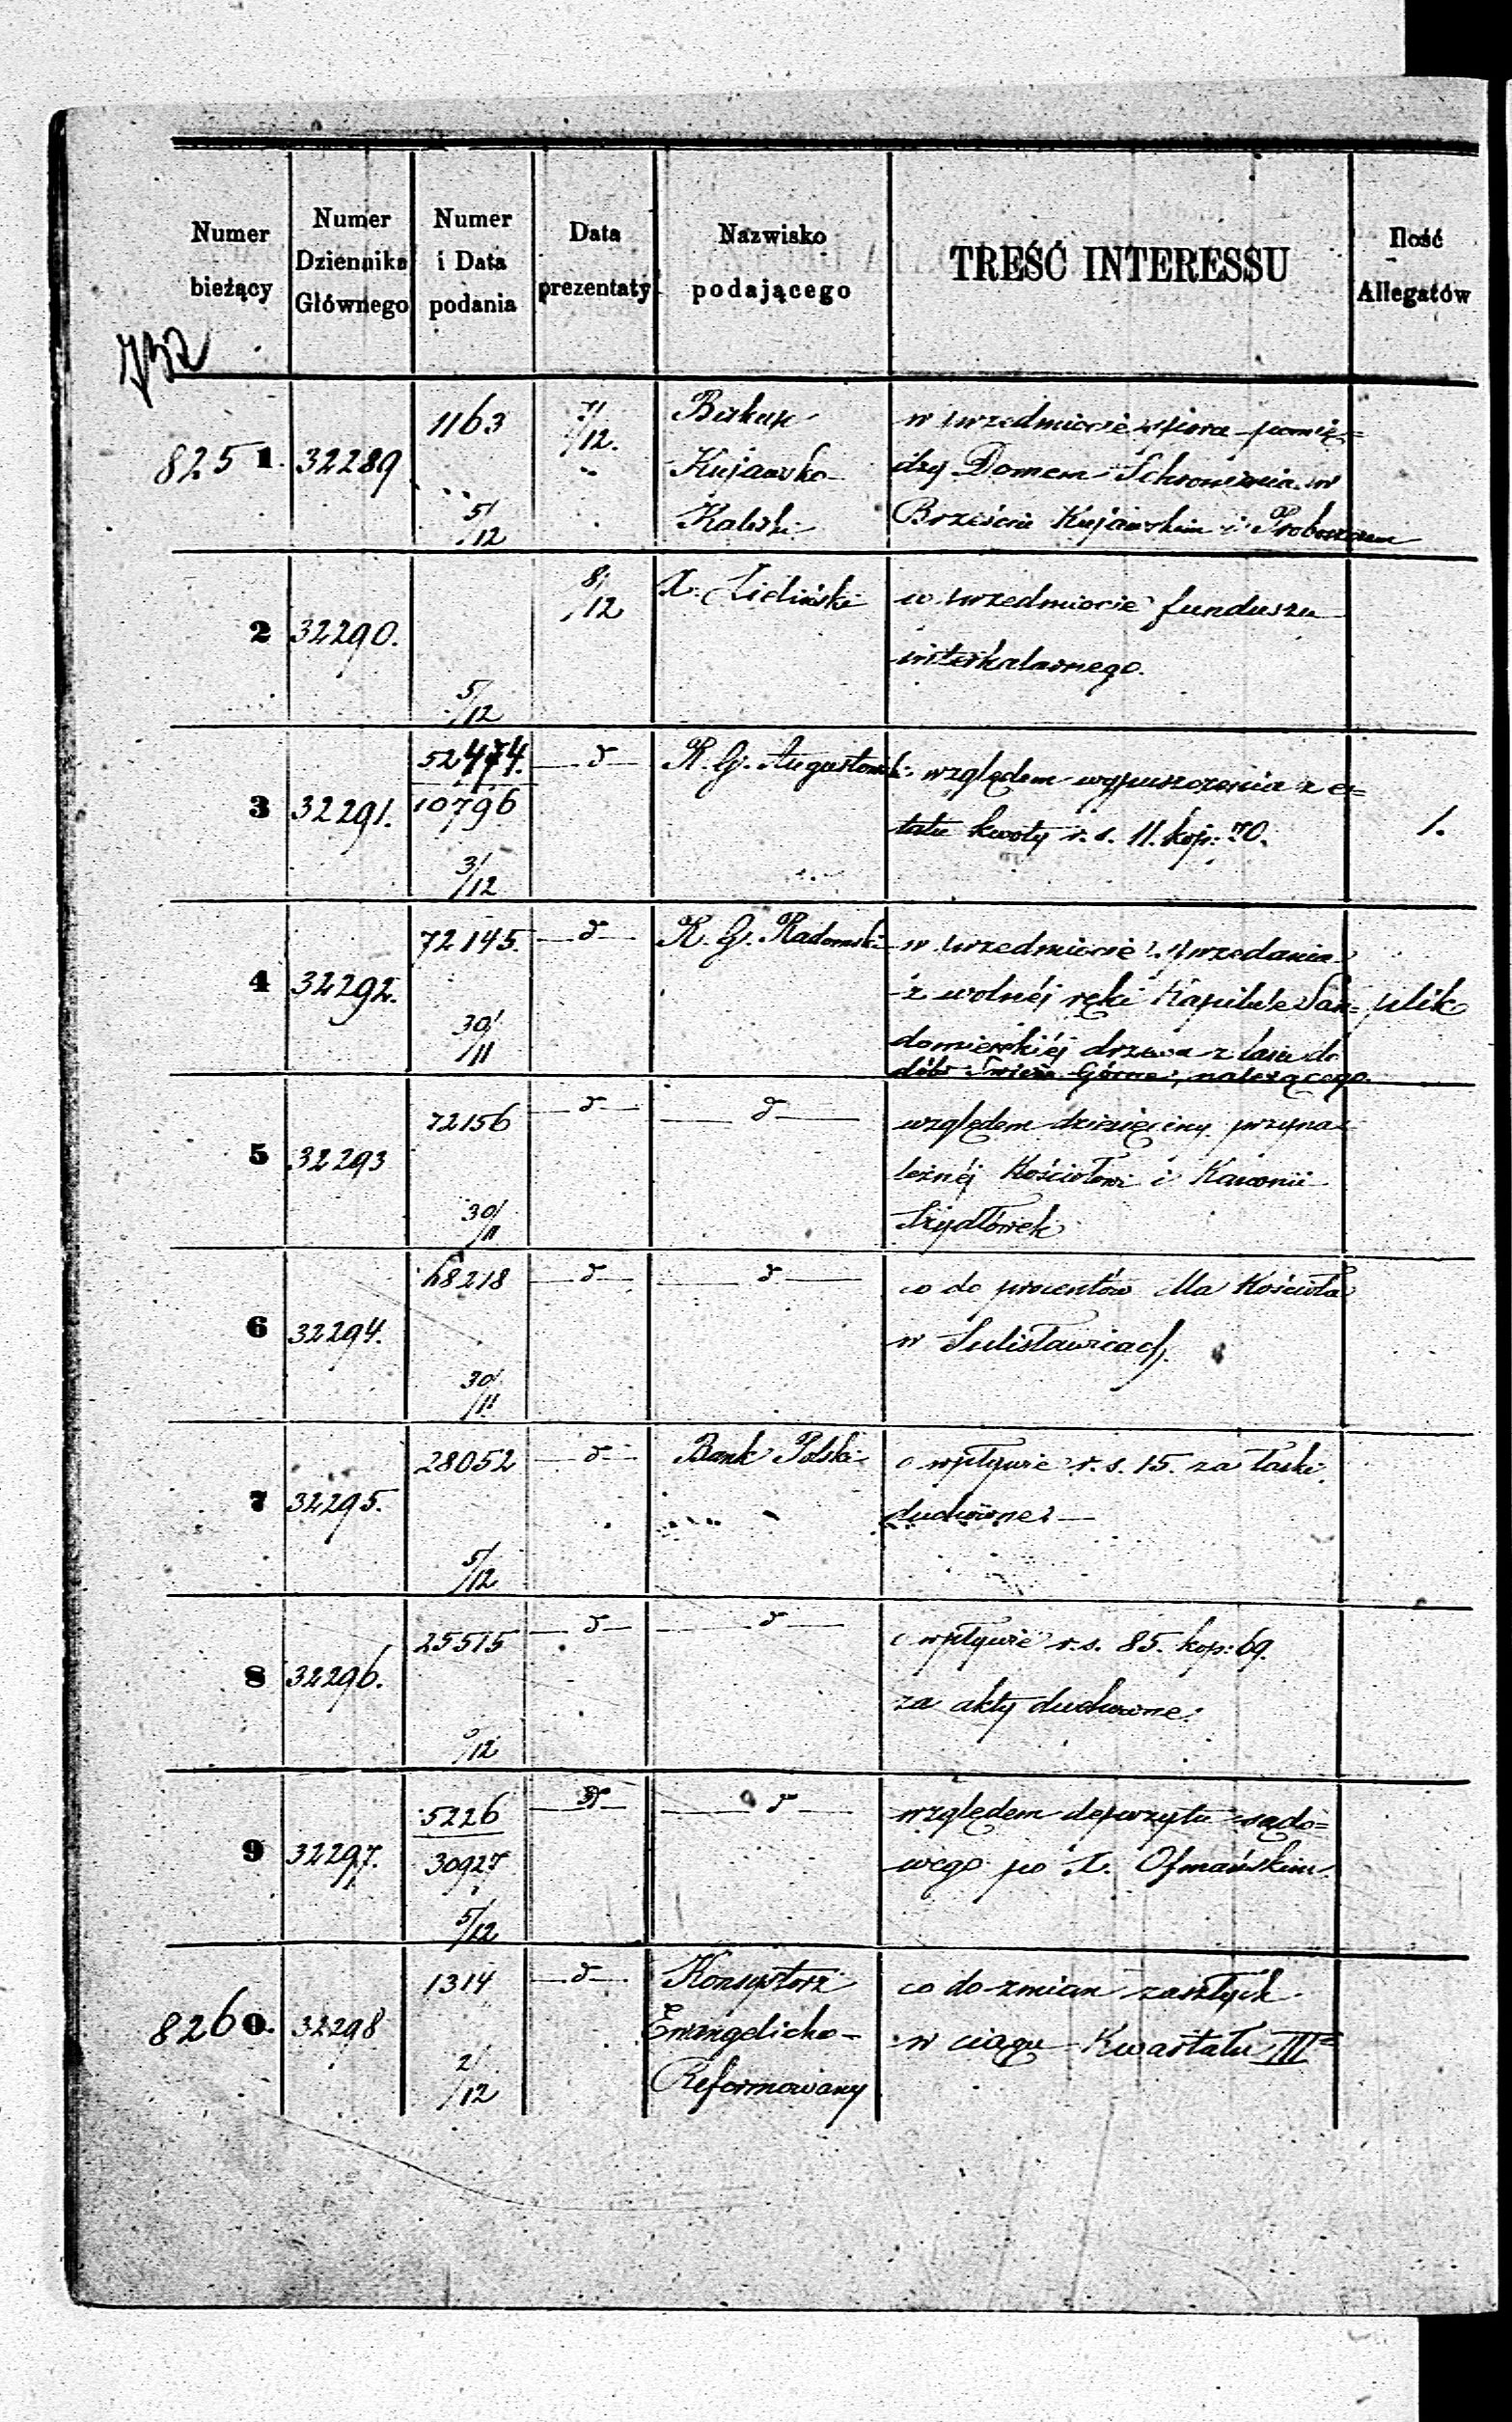 Numer bieżący
Numer Dziennika Głównego
Numer i Data podania
Data prezentaty
Nazwisko podającego
TREŚĆ INTERESSU
Ilość Allegatów
732
8251. 32289 1163 5/12 7/12. Biskup w przedmiocie spora pomię=
Kujawsko dzy Domem Schronienia w
Kaliski Brześciu Kujawskim i Proboszczem
2 32290. 5/12 8/12 X. Zieliński w przedmiocie funduszu
interkalarnego.
3 32291. 52474. 10796 3/12 d R. G. Augustowski względem wypuszczenia z e=
tatu kwoty r. s. 11. kop: 70. 1.
4 32292. 72145. 30/11 d R. G. Radomski w przedmiocie sprzedania
z wolnéj ręki Kapitule San= plik
domierskiéj drzewa z lasu do
dóbr Górne, należącego.
5 32293 72156 30/11 d d względem dziesięciny przyna=
leżnéj Kościołowi i Kanonii
Szydłówek
6 32294. 68218 30/11 d d co do procentów dla Kościoła
w Sulisławicach.
7 32295. 28052 5/12 d Bank Polski o wpływie r. s. 15. za
duchowne.
8 32296. 25515 /12 d d o wpływie r. s. 85. kop: 69.
za akty duchowne.
9 32297. 5226 30927 5/12 d d względem depozytu sądo=
wego po X. Ofmańskim.
8260. 32298 1314 2/12 d Konsystorz co do zmian zaszłych
Ewangelicko- w ciągu Kwartału III
Reformowany